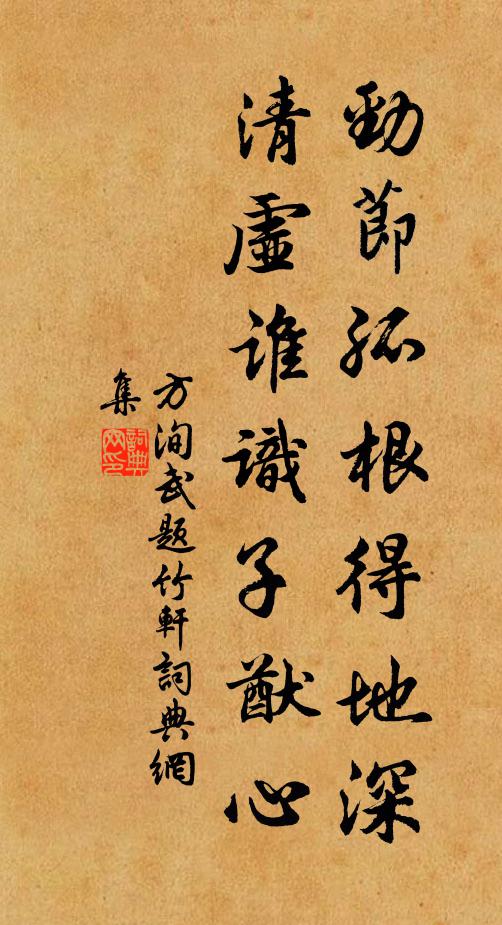 勁節孤根得地深
清虛誰識子猷心
方洵武題竹軒詞典網
集
詞典網印